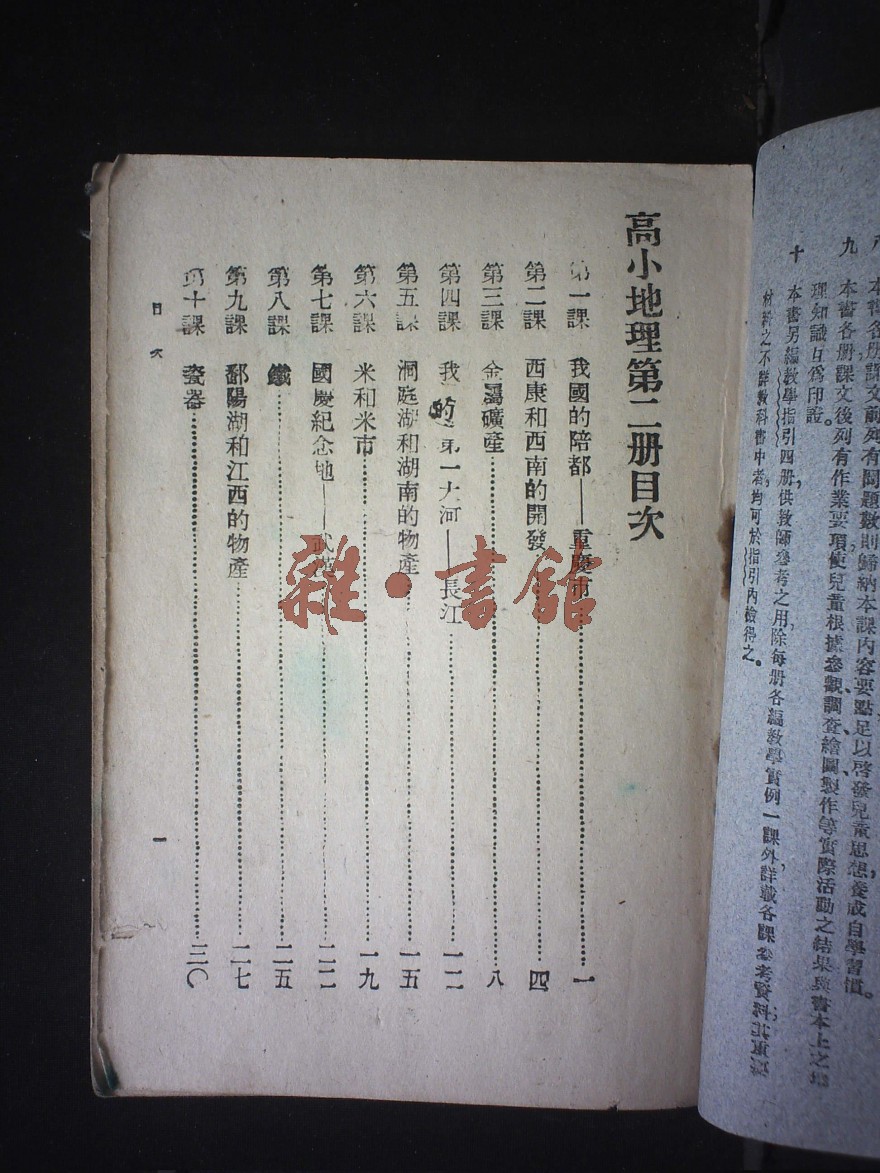 八 本書各册課文前列有問題數則歸納本課內容要點足以啓發兒童思想，養成自學習慣。
九 本書各册課文後列有作業要項使兒童根據參觀、調查、繪圖、製作等實際活動之結果與書本上之地
理知識互爲印證。
十 本書另編教學指引四册，供教師參考之用，除每册各編教學實例一課外，詳載各課參考資料，其重要
材料之不詳敎科書中者，均可於指引內檢得之。
高小地理第二册目次
第一課 我國的陪都——重慶市 一
第二課 西康和西南的開發 四
第三課 金屬礦產 八
第四課 我的第一大河——長江 一二
第五課 洞庭湖和湖南的物產 一五
第六課 米和米市 一九
第七課 國慶紀念地——武漢 二二
第八課 鐵 二五
第九課 鄱陽湖和江西的物產 二七
第十課 瓷器 三〇
目次 一
雜·書館